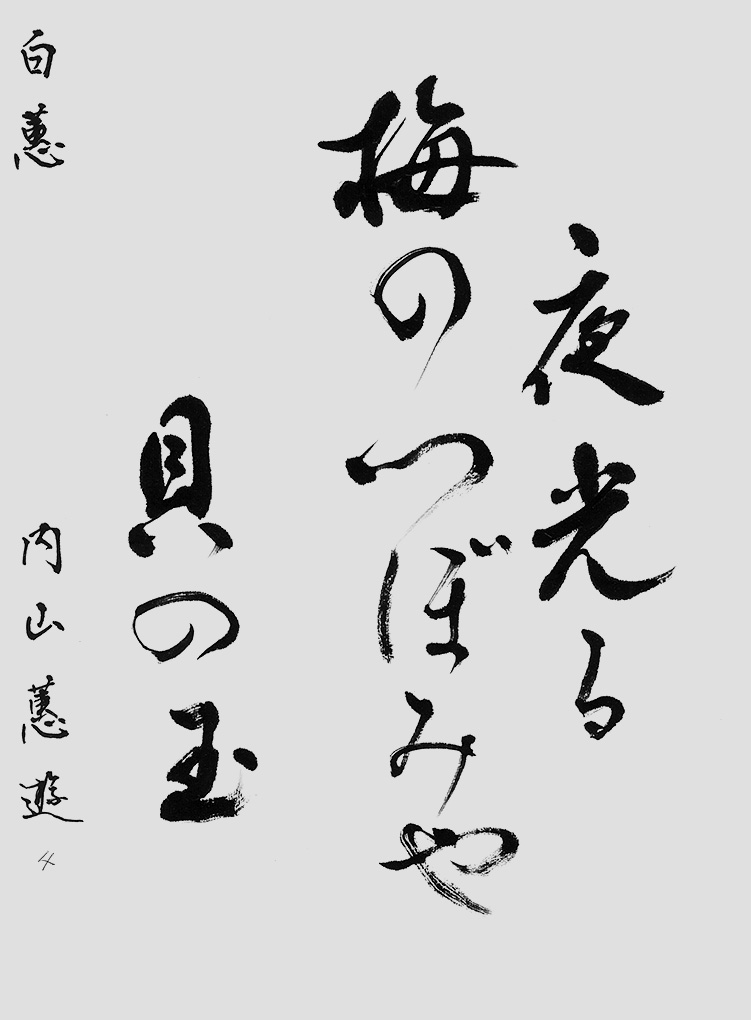 夜光る
梅のつぼみや
貝の玉
白蕙
内山蕙遊
4